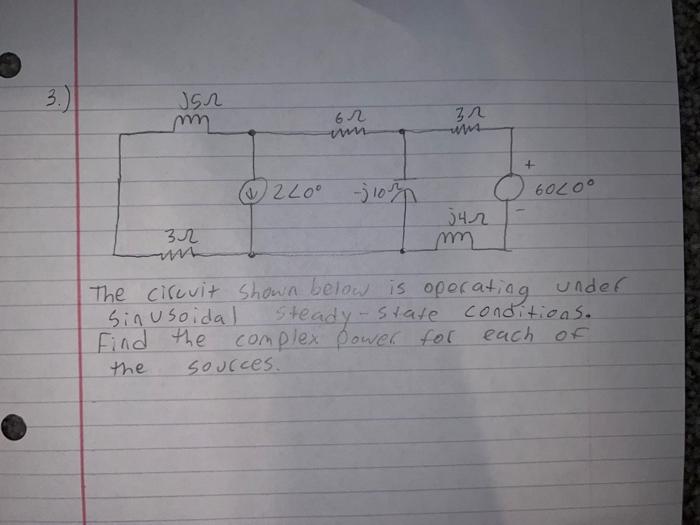 3.)
J5Ω
6Ω
3Ω
2∠0°
-j10Ω
+
60∠0°
-
j4Ω
3Ω
The circuit shown below is operating under
sinusoidal steady-state conditions.
Find the complex power for each of
the sources.